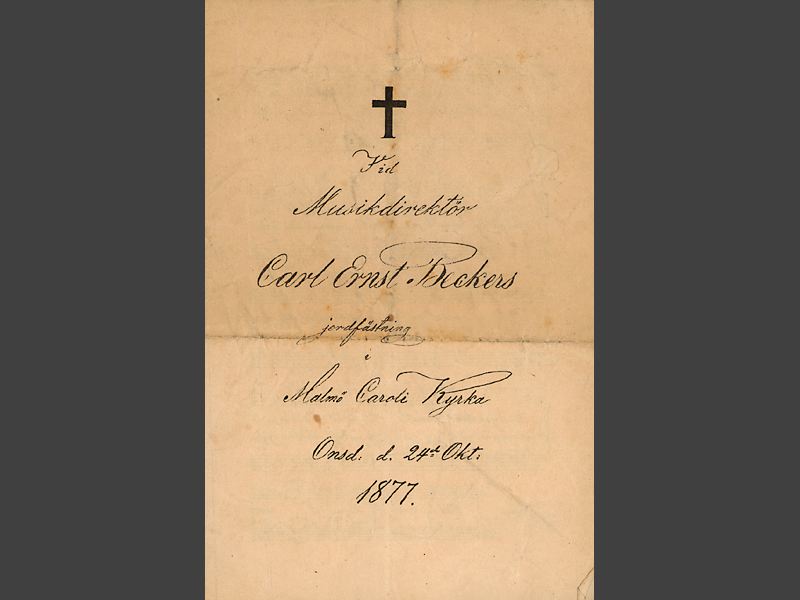 Vid
Musikdirektör
Carl Ernst Beckers
jordfästning
i
Malmö Caroli Kyrka
Onsd: d. 24de Okt:
1877.